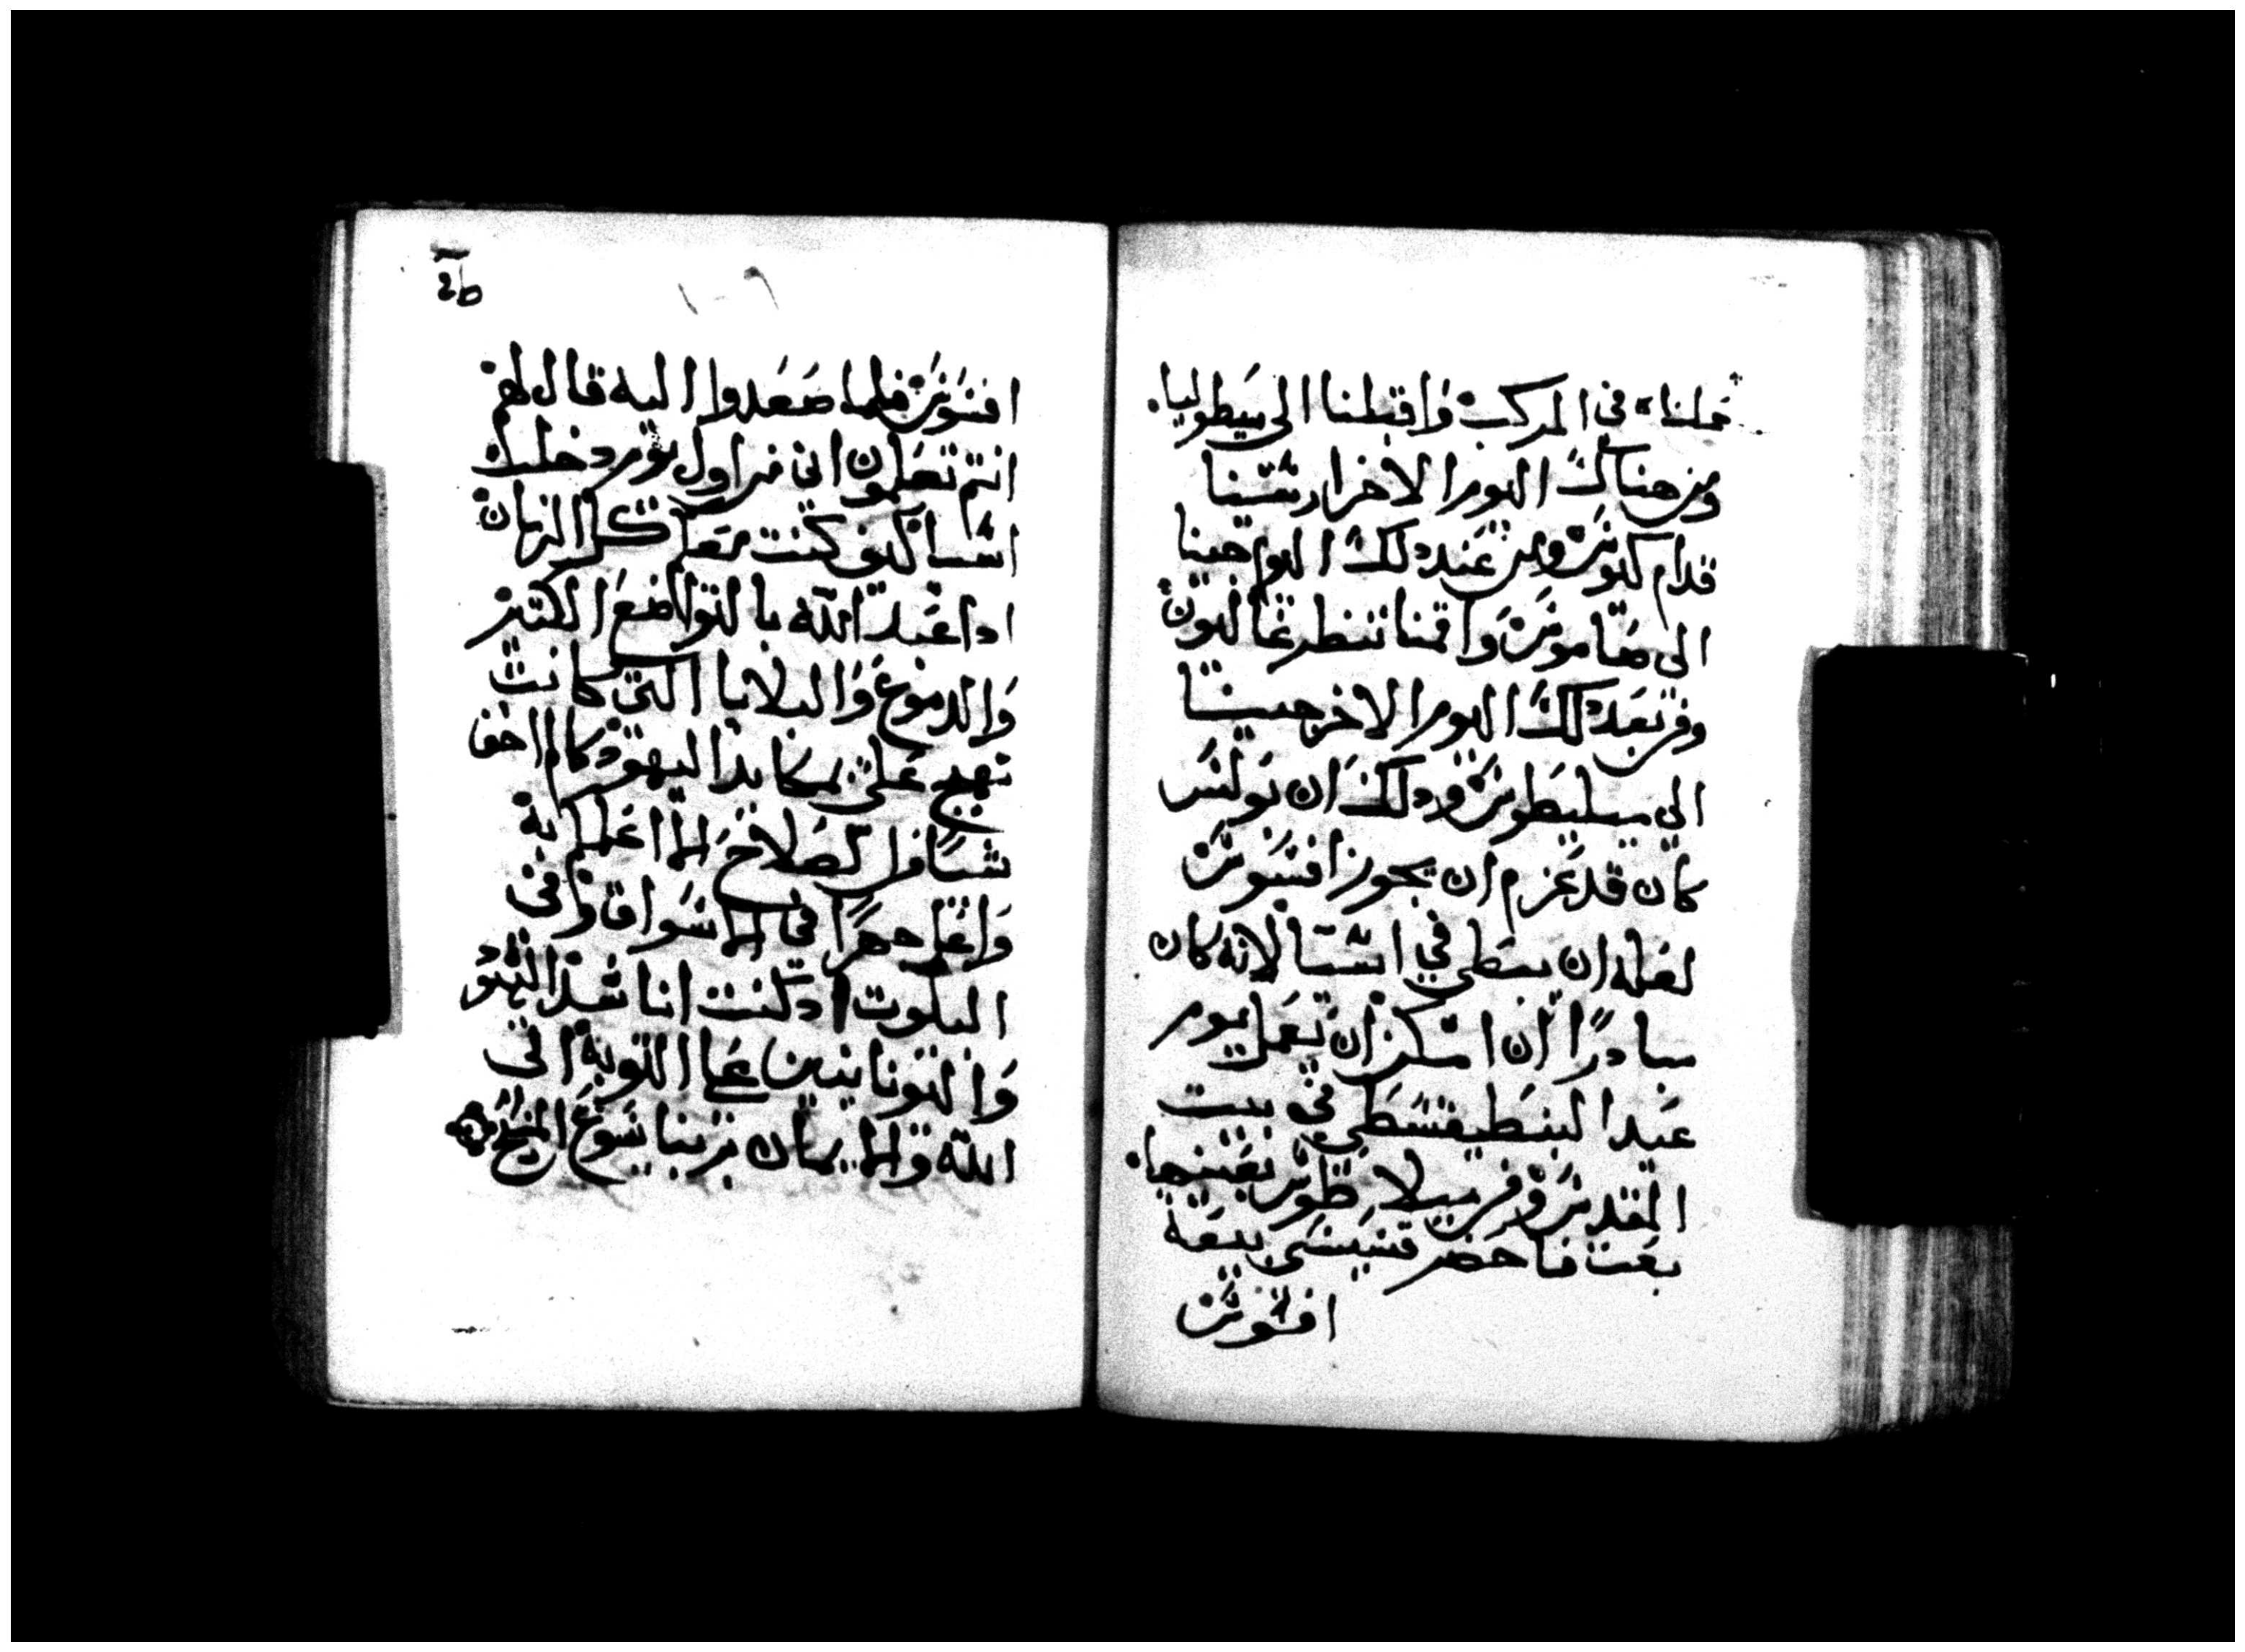 حملناه في المركب واقبطنا الى ميطوليا.
ومن هناك اليوم الاخر ارسَينا
قدام كيوس ومن غَد ذلك اليوم جينا
الى صَاموسَ وَاقمنا تنظرغاليون
ومن بَعد ذلك اليوم الاخر جينا
الي ميليطوسَ وذلك ان بَولسَ
كان قد عَزم ان يجوز افسَوس
لعَله ان يبطي في اسيا لانه كان
مبادرًا ان امكن ان يَعمل يوم
عيد البنطيقسطي في بيت
المقدس ومن ميلاطوس بعَينها.
بعَت فاحضر قسيسَى بيعَة
افسوس
افسَوس فلما صَعَدوا اليه قال لهم
انتم تعلمون اني من اول يوم دخلت
اسيا كيف كنت معكم كل الزمان
اداعَبد الله بالتواضعَ الكتير
وَالدموعَ وَالبلايا التي كانت
تهيج عَلي بمكايد اليهود كما لم اخف
شيا من الصَلاح لم اعَلمكم به
وَاعَلم جهرًا في الاسَواق وفي
البيوت اد كنت اناشد اليهود
وَاليونانيين عَلى التوبة الى
الله وَالايمان بربنا يسَوعَ المسيح